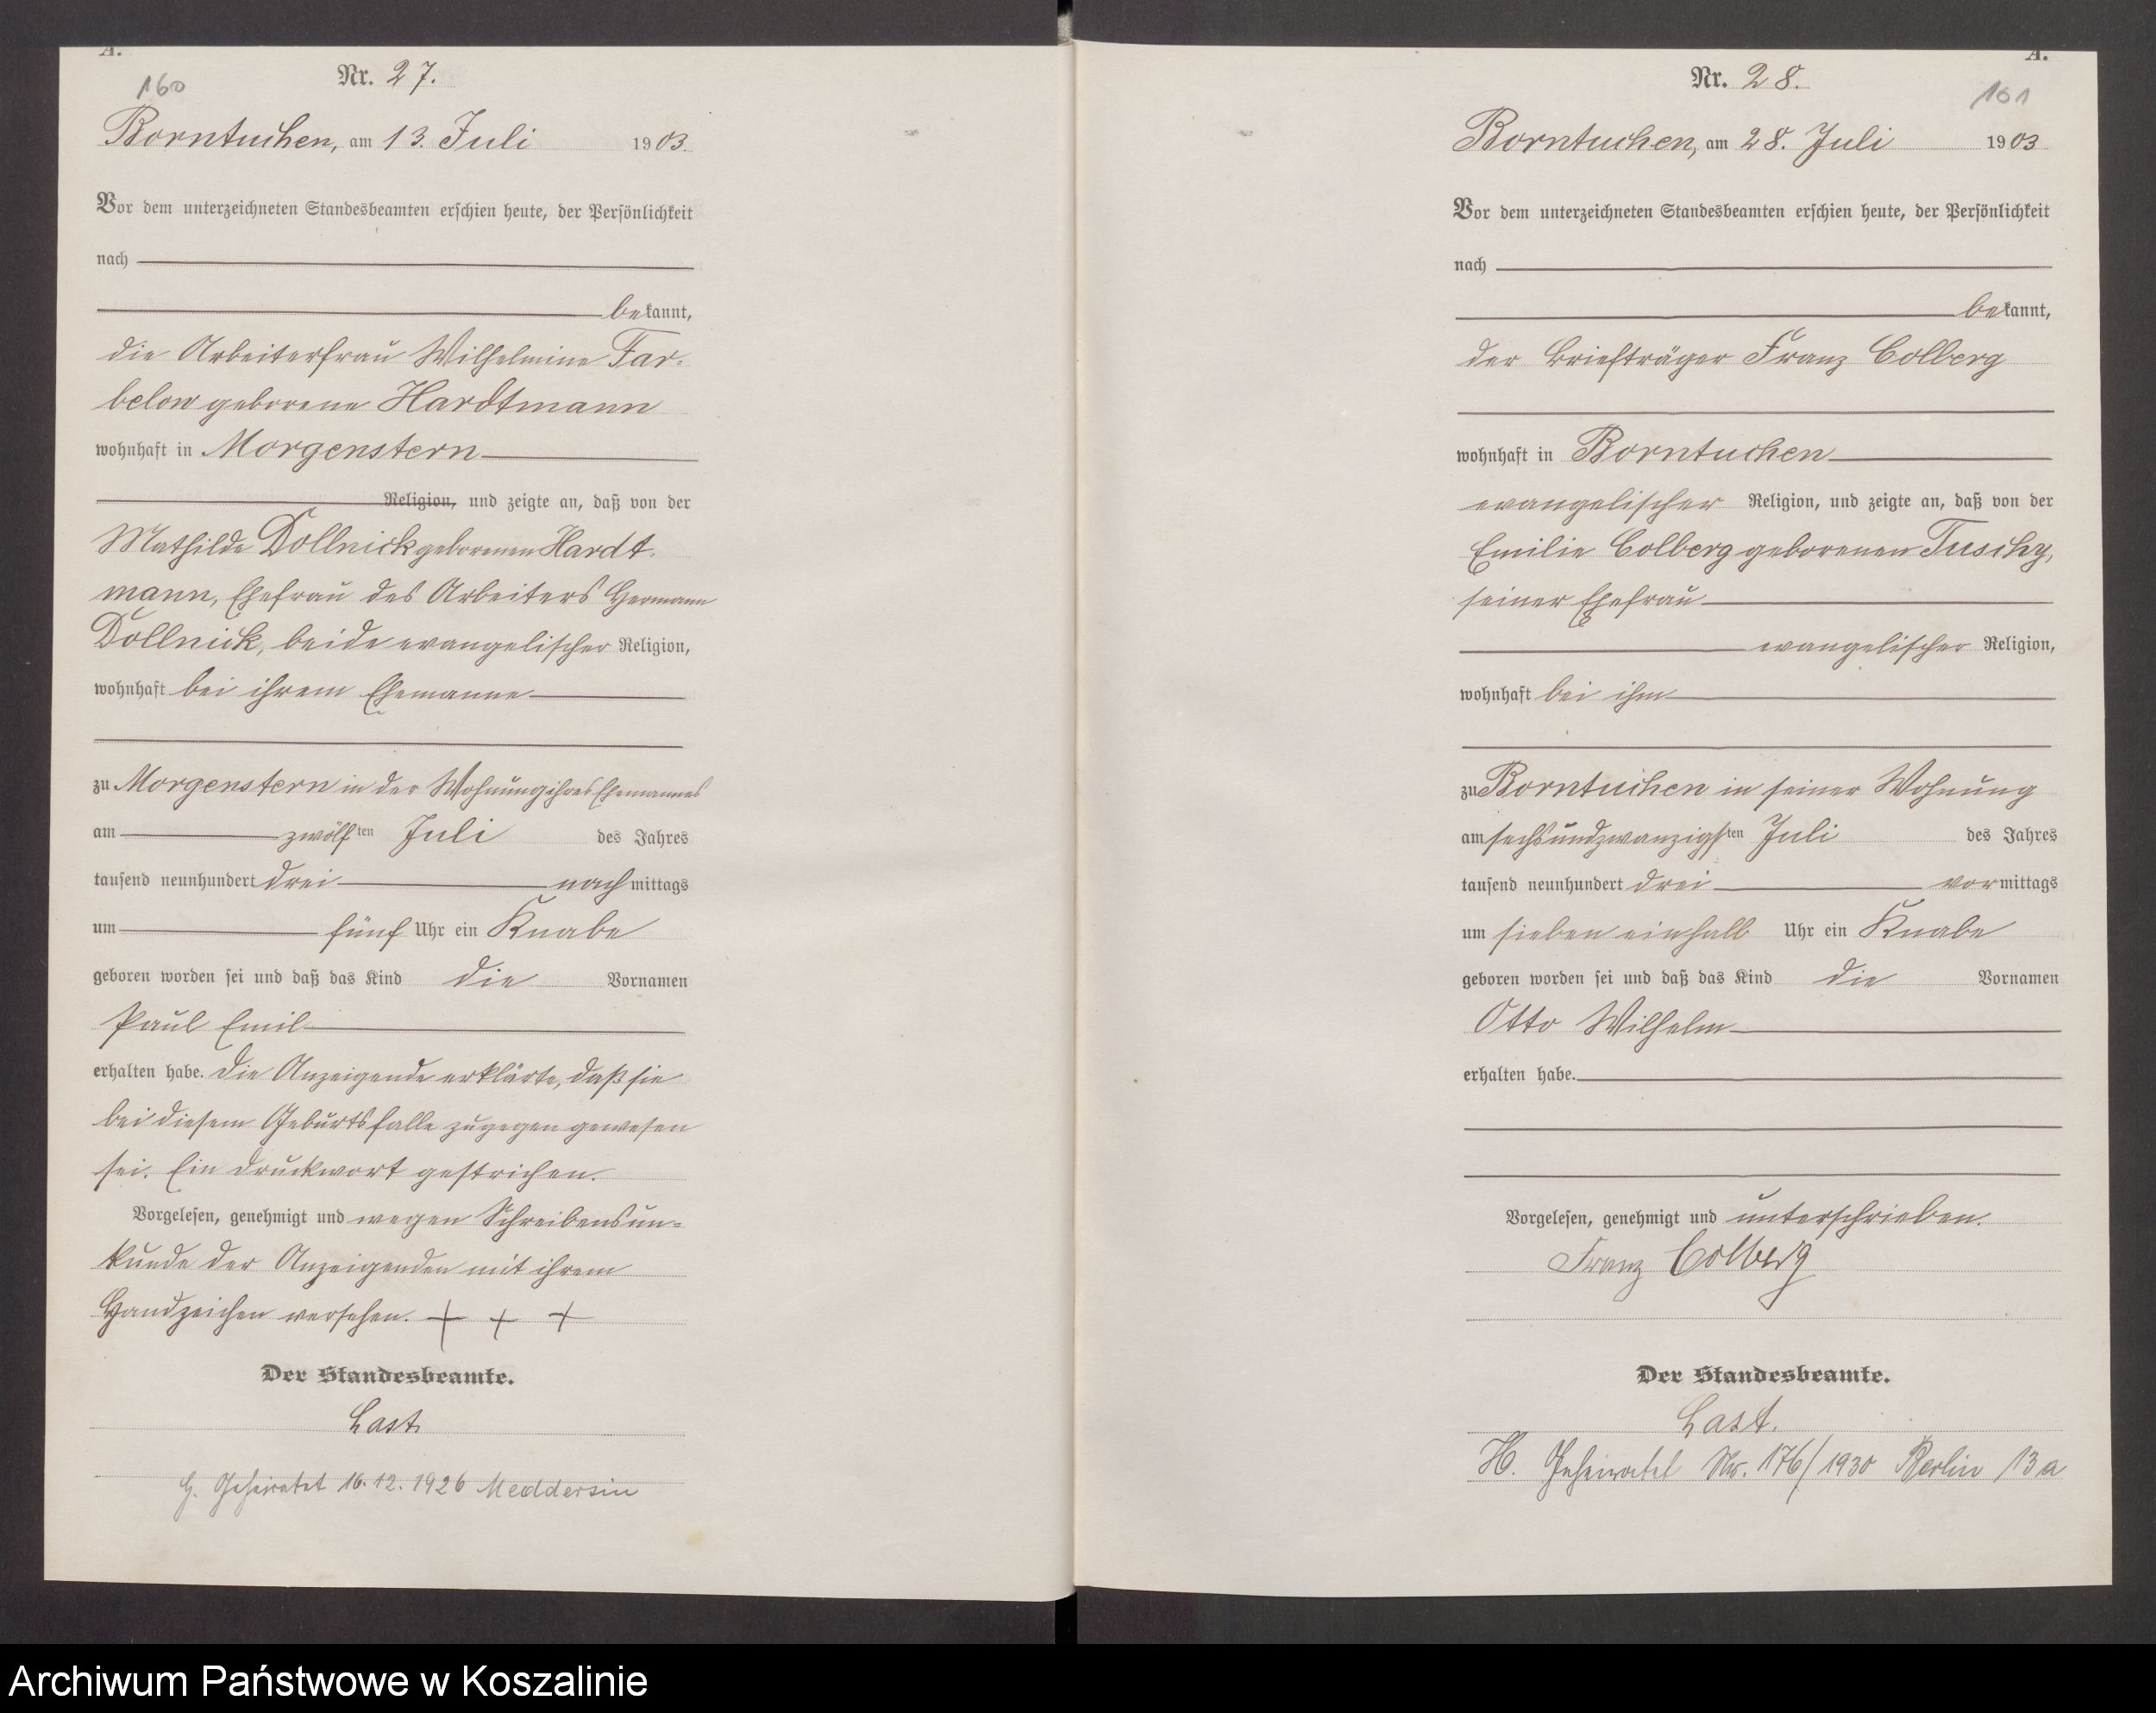 A.
160
Nr. 27.
Borntuchen, am 13. Juli 1903.
Vor dem unterzeichneten Standesbeamten erschien heute, der Persönlichkeit
nach
bekannt,
die Arbeiterfrau Wilhelmine Far-
below geborene Hardtmann
wohnhaft in Morgenstern
Religion, und zeigte an, daß von der
Mathilde Dollnick geborenen Hardt-
mann, Ehefrau des Arbeiters Hermann
Dollnick, beide evangelischer Religion,
wohnhaft bei ihrem Ehemanne
zu Morgenstern in der Wohnung ihres Ehemannes
am zwölften Juli des Jahres
tausend neunhundert drei nachmittags
um fünf Uhr ein Knabe
geboren worden sei und daß das Kind die Vornamen
Paul Emil
erhalten habe. Die Anzeigende erklärte, daß sie
bei diesem Geburtsfalle zugegen gewesen
sei. Ein Druckwort gestrichen.
Vorgelesen, genehmigt und wegen Schreibensun-
kunde der Anzeigenden mit ihrem
Handzeichen versehen. + + +
Der Standesbeamte.
Last.
H. Geheiratet 16.12.1926 Meddersin
A.
161
Nr. 28.
Borntuchen, am 28. Juli 1903
Vor dem unterzeichneten Standesbeamten erschien heute, der Persönlichkeit
nach
bekannt,
der Briefträger Franz Colberg
wohnhaft in Borntuchen
evangelischer Religion, und zeigte an, daß von der
Emilie Colberg geborenen Tuschy,
seiner Ehefrau
evangelischer Religion,
wohnhaft bei ihm
zu Borntuchen in seiner Wohnung
am sechsundzwanzigsten Juli des Jahres
tausend neunhundert drei vormittags
um sieben einhalb Uhr ein Knabe
geboren worden sei und daß das Kind die Vornamen
Otto Wilhelm
erhalten habe.
Vorgelesen, genehmigt und unterschrieben.
Franz Colberg
Der Standesbeamte.
Last.
H. Geheiratet Nr. 176/1930 Berlin 13a
Archiwum Państwowe w Koszalinie